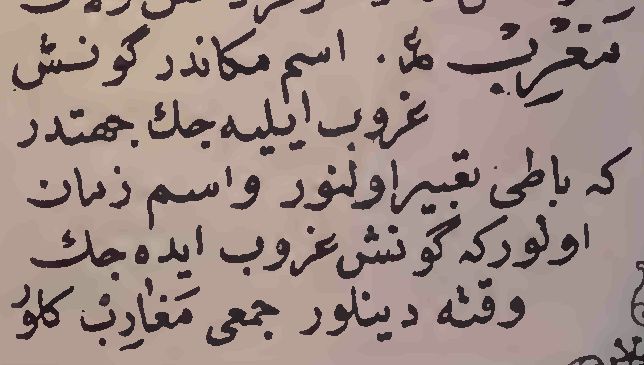 مَغْرِبْ ع. اسم مكاندر گونش
غروب ايليه جك جهتدر
كه باطى تعبير اولنور واسم زمان
اولوركه گونش غروب ايده جك
وقته دينلور جمعى مَغَارِبْ كلور